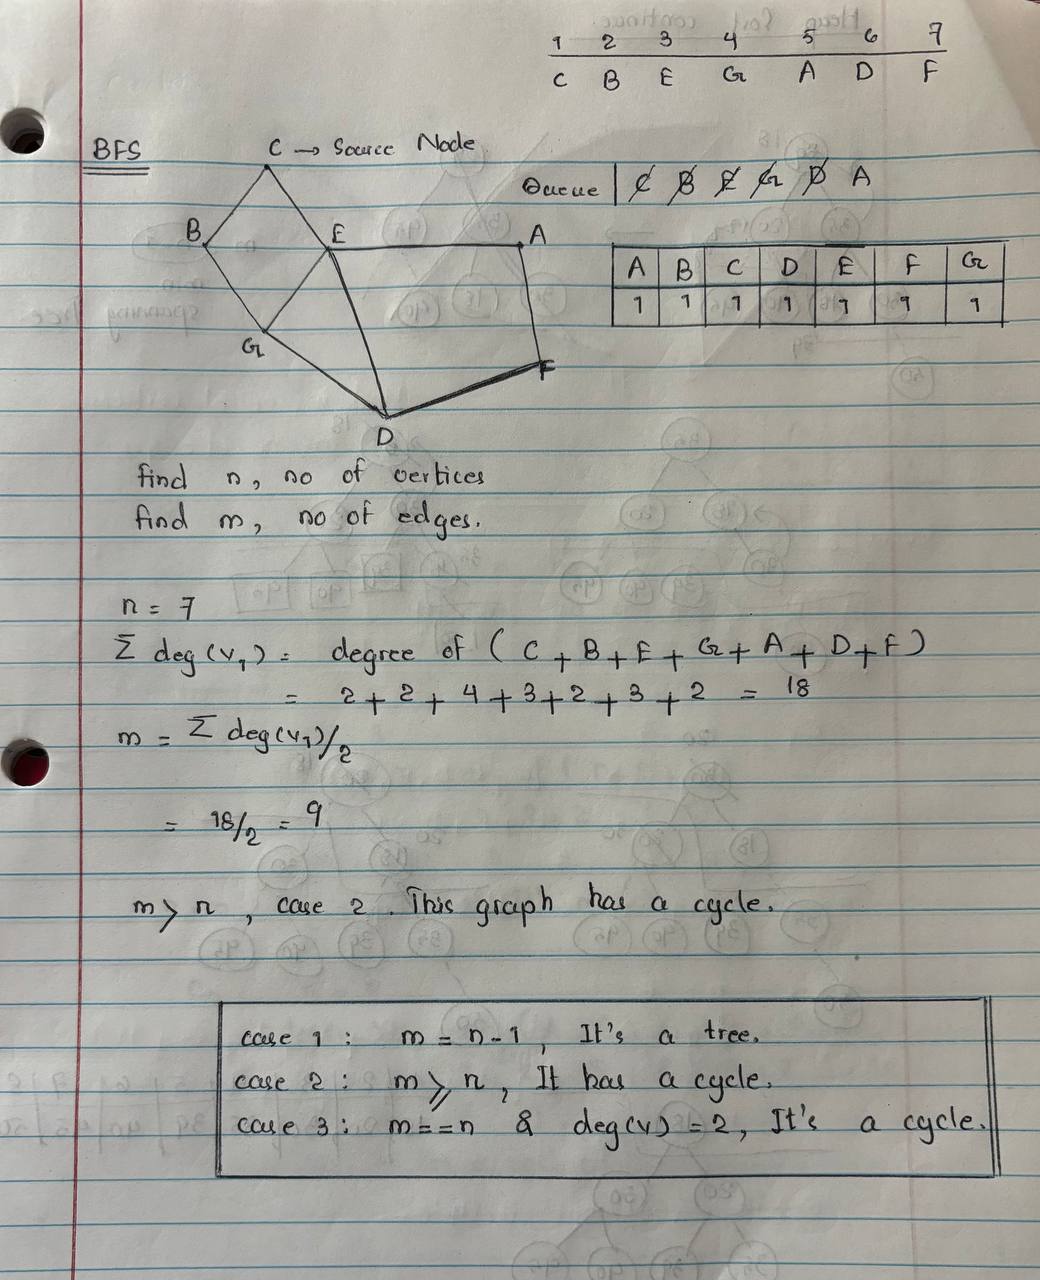 1 2 3 4 5 6 7
C B E G A D F
BFS
C → Source Node
Queue | C B E G D A
B E A
A B C D E F G
1 1 1 1 1 1 1
G
F
D
find n, no of vertices
find m, no of edges.
n = 7
Σ deg(v₁) = degree of ( C + B + E + G + A + D + F )
= 2 + 2 + 4 + 3 + 2 + 3 + 2 = 18
m = Σ deg(v₁)/2
= 18/2 = 9
m > n , case 2 . This graph has a cycle.
case 1 : m = n - 1 , It's a tree.
case 2 : m ⩾ n , It has a cycle.
case 3 : m == n & deg(v) = 2, It's a cycle.